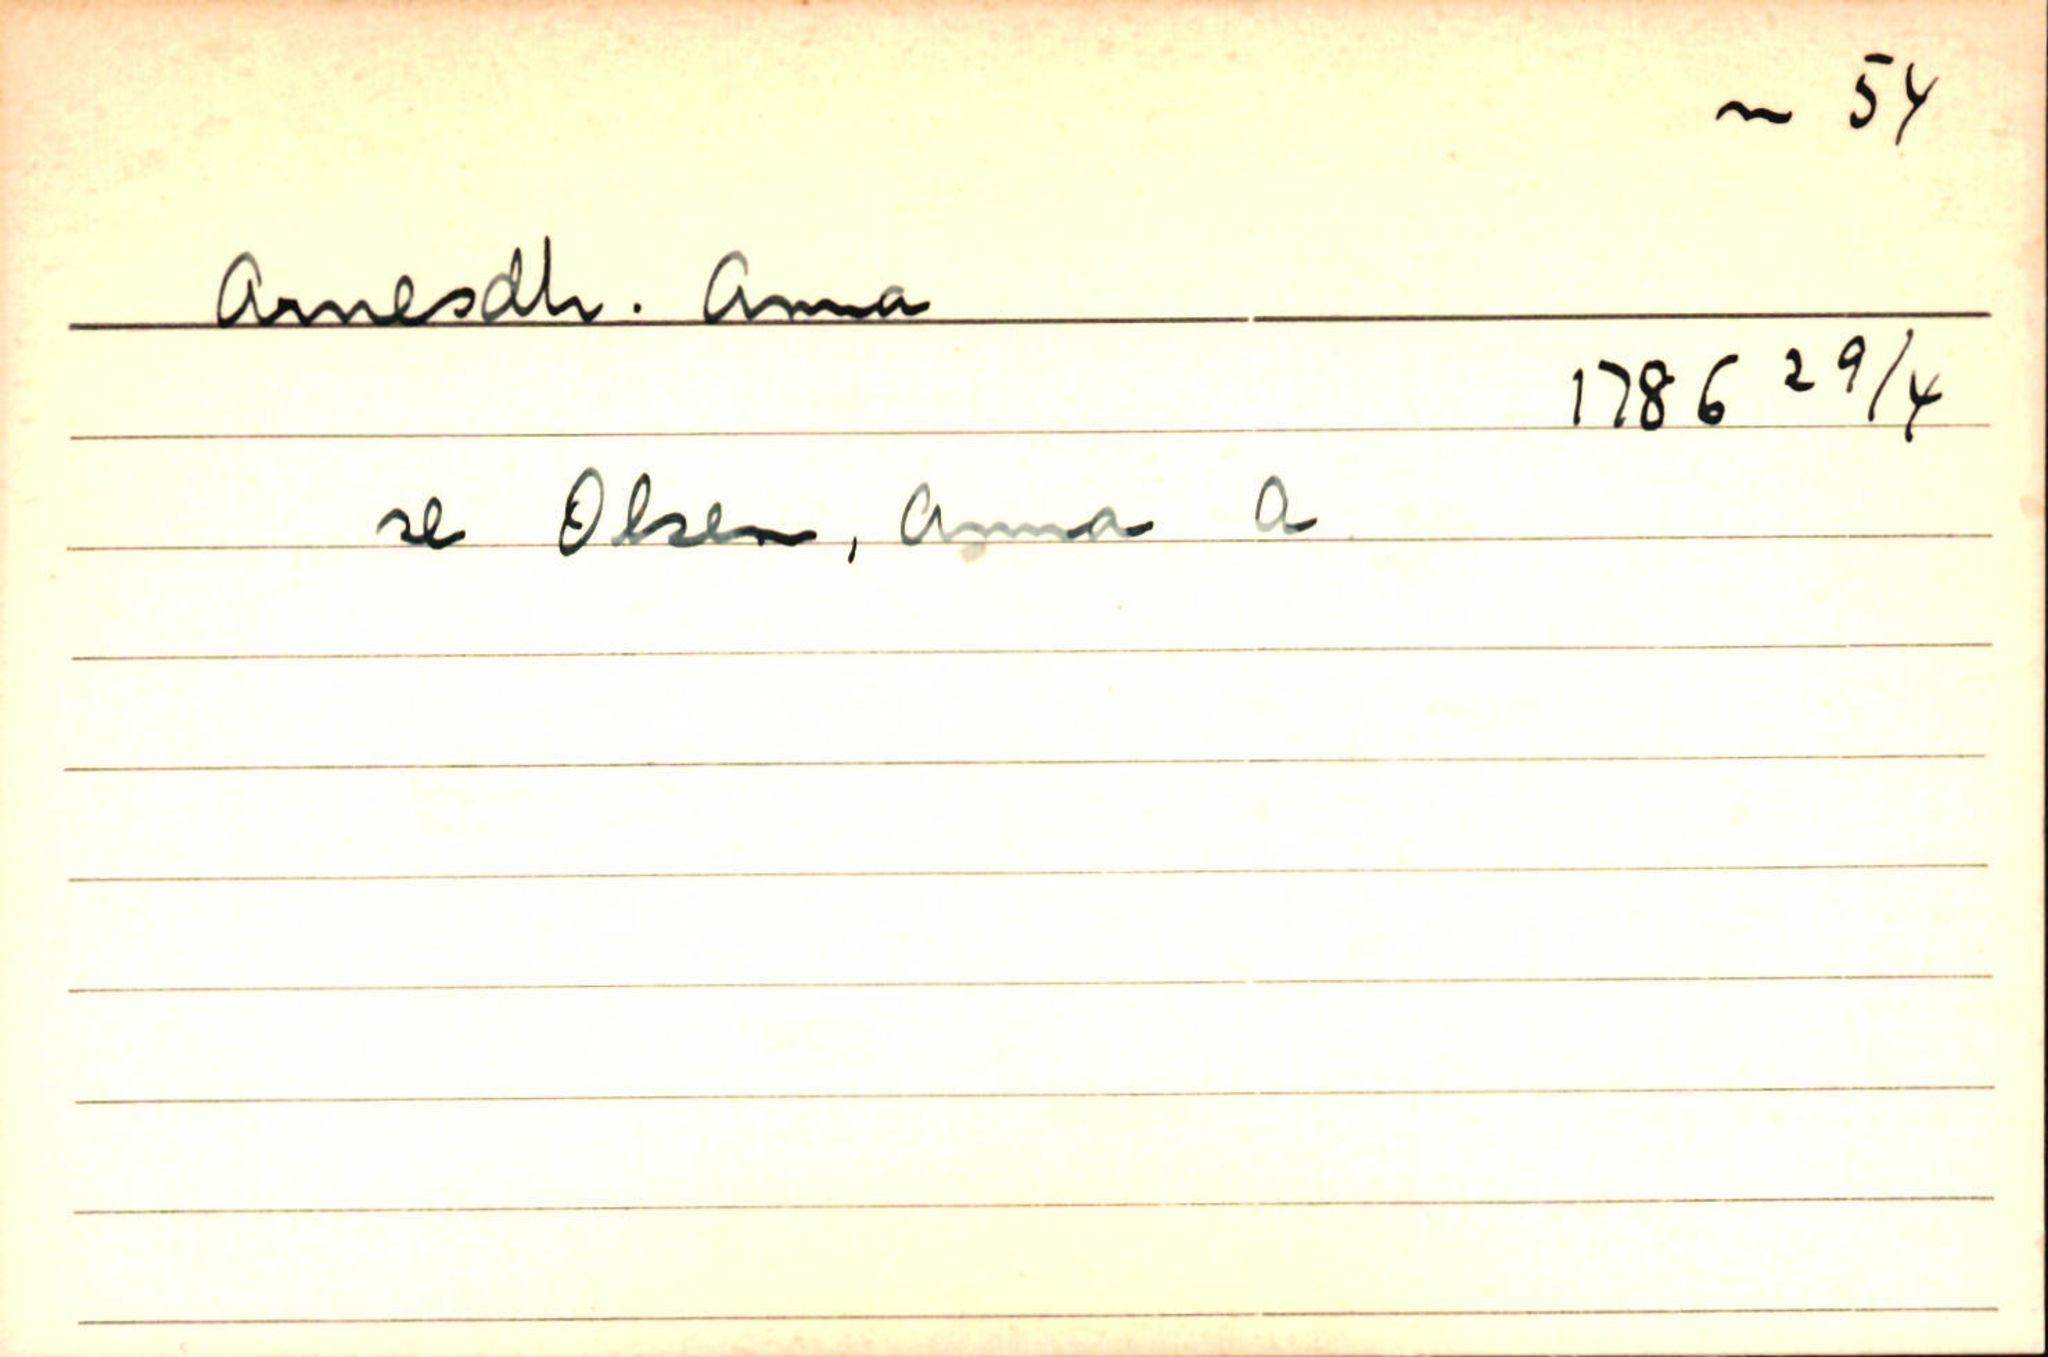 ~ 54
Arnesdtr. Anna
1786 29/4
se Olsen, Anna A